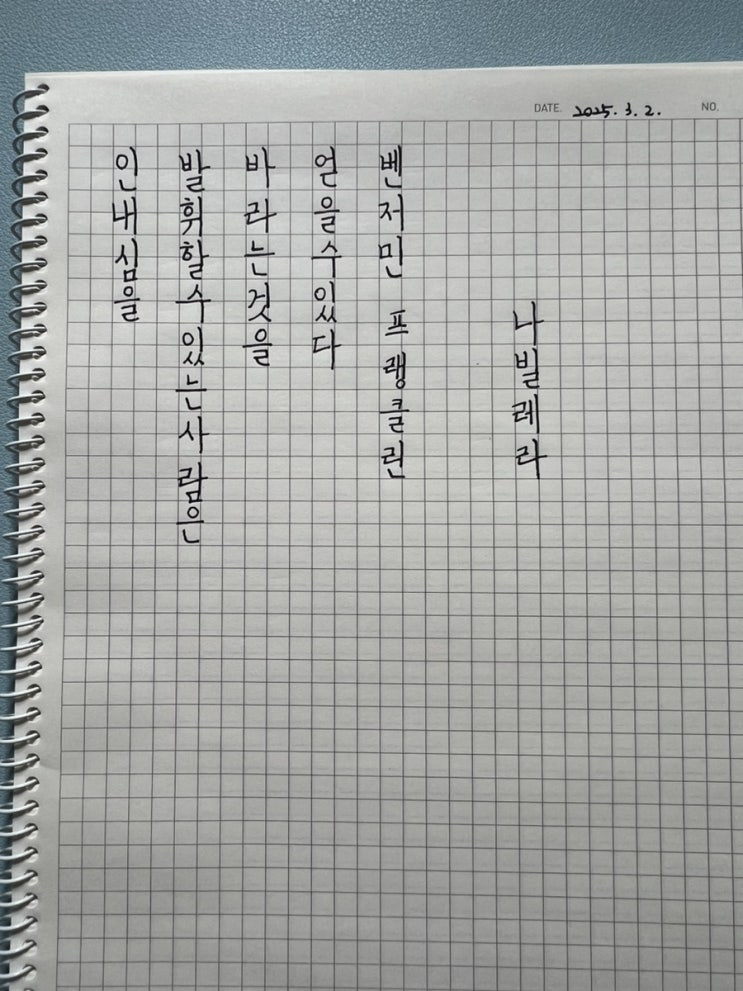 DATE. 2025. 3. 2. NO.
인내심을
발휘할수있는사람은
바라는것을
얻을수있다
벤저민 프랭클린
나빌레라